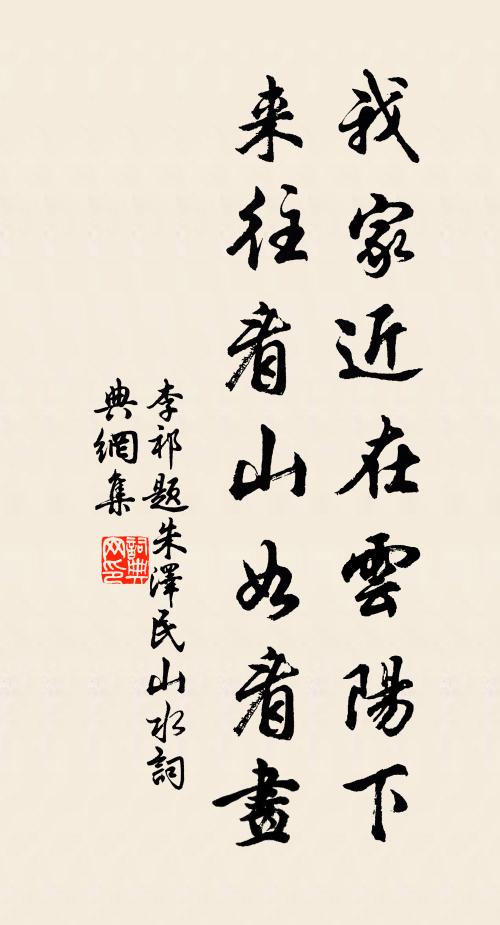 我家近在雲陽下
来往看山如看畫
李祁題朱澤民山水詞
典網集
詞典网印